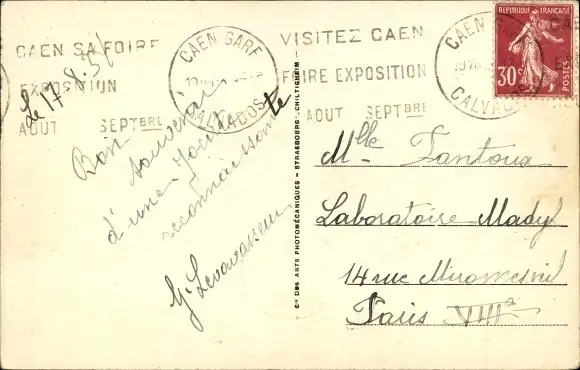 CAEN SA FOIRE
EXPOSITION
AOUT SEPTBRE
CAEN GARE
CALVADOS
VISITEZ CAEN
FOIRE EXPOSITION
AOUT SEPTBRE
CAEN
CALVADOS
REPUBLIQUE FRANÇAISE
30c
POSTES
Le 17.8.37
Bon souvenir
d'une
reconnaissante
G. Levavasseur
CIE DES ARTS PHOTOMÉCANIQUES - STRASBOURG-SCHILTIGHEIM
Mlle Tantoux
Laboratoire Mady
14 rue Miromesnil
Paris VIIIe